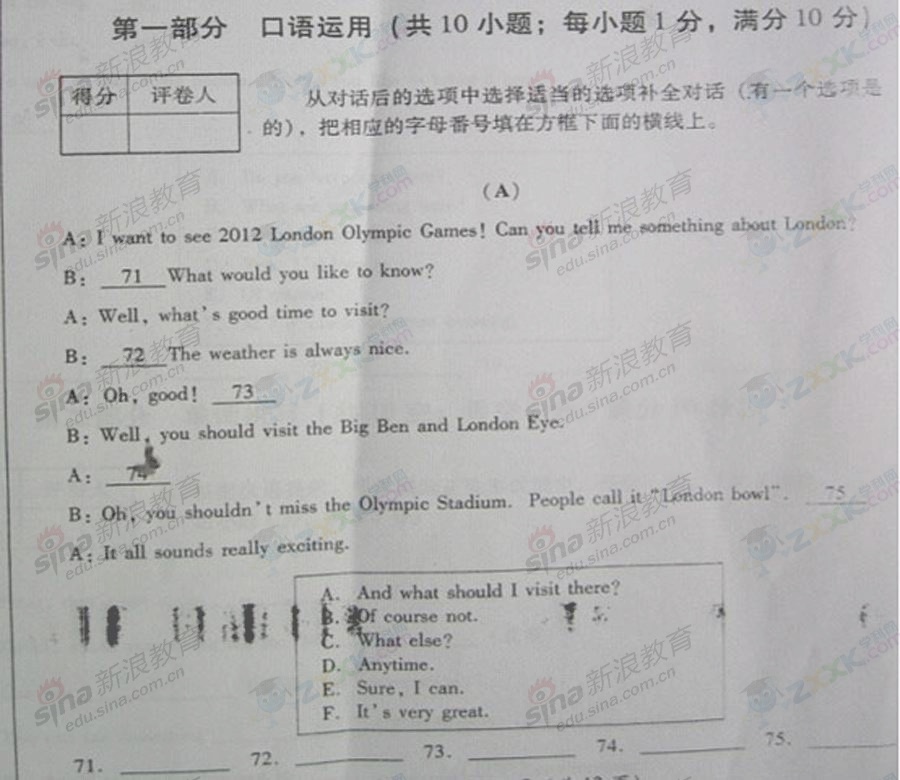 第一部分 口语运用（共 10 小题；每小题 1 分，满分 10 分）
得分 评卷人
从对话后的选项中选择适当的选项补全对话（有一个选项是
的），把相应的字母番号填在方框下面的横线上。
（A）
A：I want to see 2012 London Olympic Games! Can you tell me something about London?
B： 71 What would you like to know?
A：Well, what's good time to visit?
B： 72 The weather is always nice.
A：Oh, good! 73
B：Well, you should visit the Big Ben and London Eye.
A： 74
B：Oh, you shouldn't miss the Olympic Stadium. People call it "London bowl". 75
A：It all sounds really exciting.
A. And what should I visit there?
B. Of course not.
C. What else?
D. Anytime.
E. Sure, I can.
F. It's very great.
71. 72. 73. 74. 75.
sina 新浪教育
edu.sina.com.cn
ZXXK.com 学科网